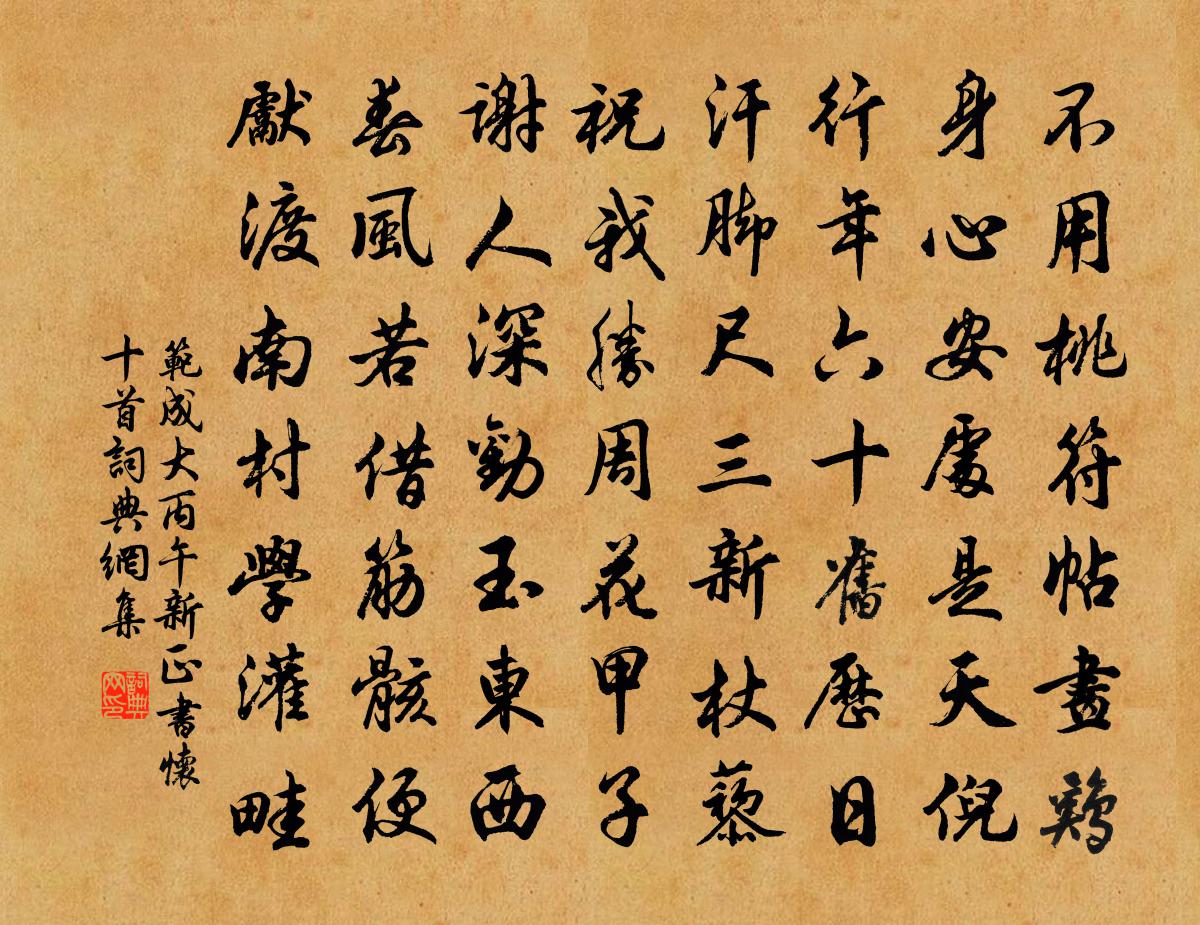 不用桃符帖畫鷄
身心安處是天倪
行年六十舊歷日
汗脚尺三新杖藜
祝我勝周花甲子
謝人深勸玉東西
春風若借筋骸便
獻渡南村學灌畦
範成大丙午新正書懷
十首詞典網集
詞典网印